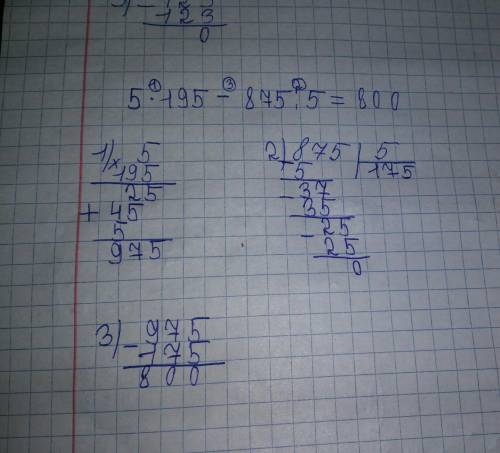 123
0
① ③ ②
5 · 195 - 875 : 5 = 800
1) × 5
195
25
+ 45
5
975
2) - 875 | 5
5 | 175
- 37
35
- 25
25
0
3) - 975
175
800